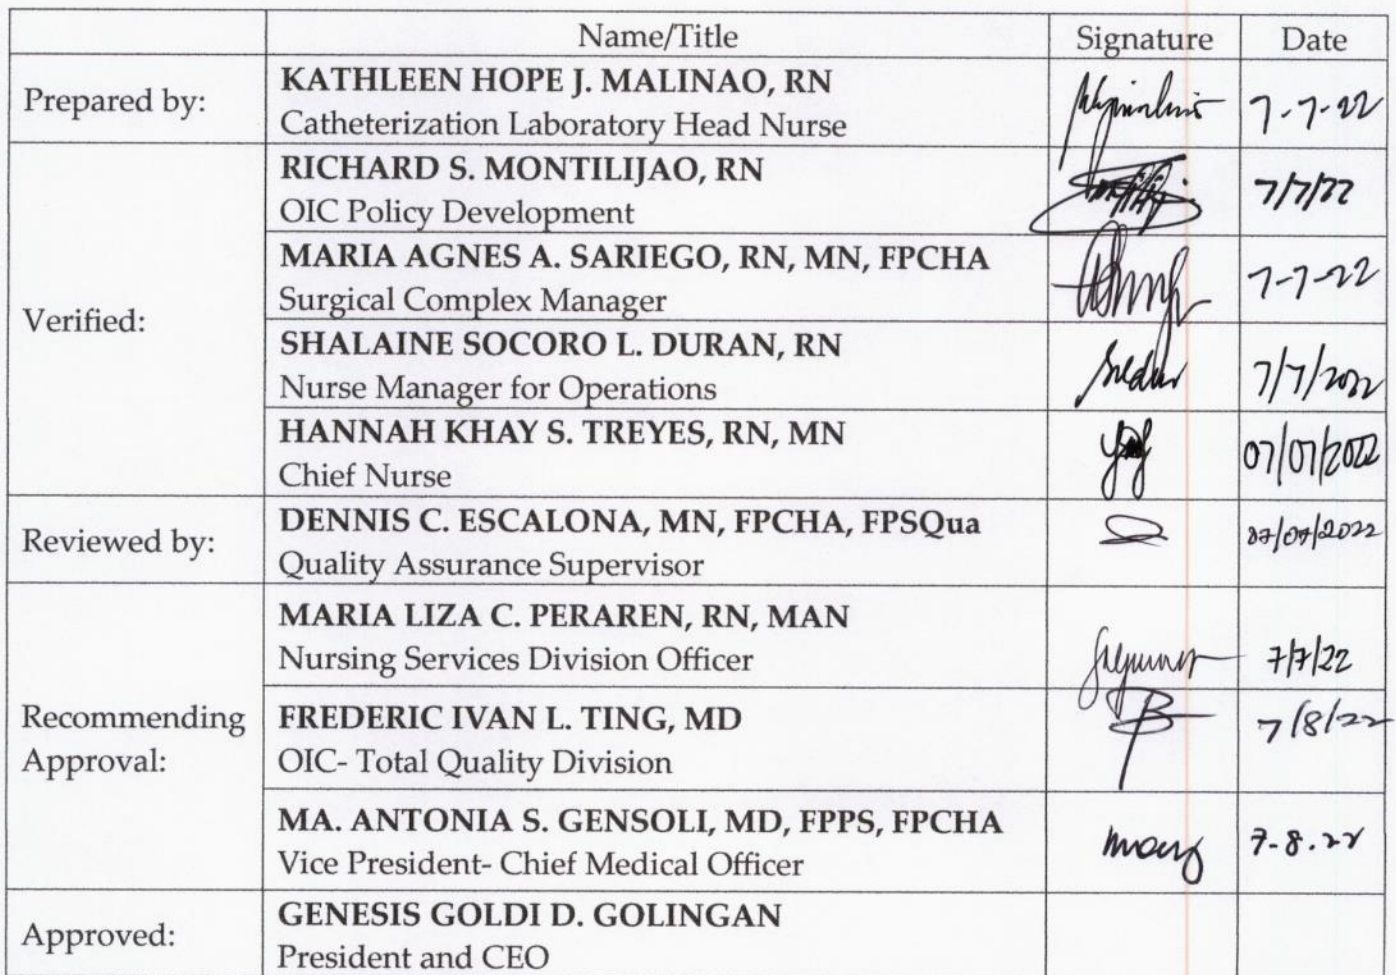 Name/Title Signature Date
Prepared by: KATHLEEN HOPE J. MALINAO, RN
Catheterization Laboratory Head Nurse 7-7-22
Verified: RICHARD S. MONTILIJAO, RN
OIC Policy Development 7/7/22
MARIA AGNES A. SARIEGO, RN, MN, FPCHA
Surgical Complex Manager 7-7-22
SHALAINE SOCORO L. DURAN, RN
Nurse Manager for Operations 7/7/2022
HANNAH KHAY S. TREYES, RN, MN
Chief Nurse 07/07/2022
Reviewed by: DENNIS C. ESCALONA, MN, FPCHA, FPSQua
Quality Assurance Supervisor 07/07/2022
Recommending Approval: MARIA LIZA C. PERAREN, RN, MAN
Nursing Services Division Officer 7/7/22
FREDERIC IVAN L. TING, MD
OIC- Total Quality Division 7/8/22
MA. ANTONIA S. GENSOLI, MD, FPPS, FPCHA
Vice President- Chief Medical Officer 7-8-22
Approved: GENESIS GOLDI D. GOLINGAN
President and CEO